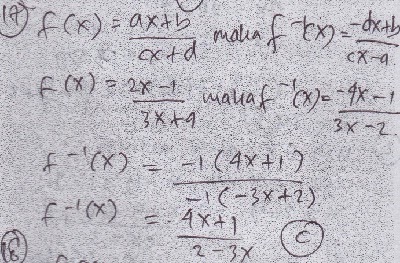 17) f(x) = ax+b / cx+d maka f⁻¹(x) = -dx+b / cx-a
f(x) = 2x-1 / 3x+4 maka f⁻¹(x) = -4x-1 / 3x-2
f⁻¹(x) = -1(4x+1) / -1(-3x+2)
f⁻¹(x) = 4x+1 / 2-3x (C)
18)